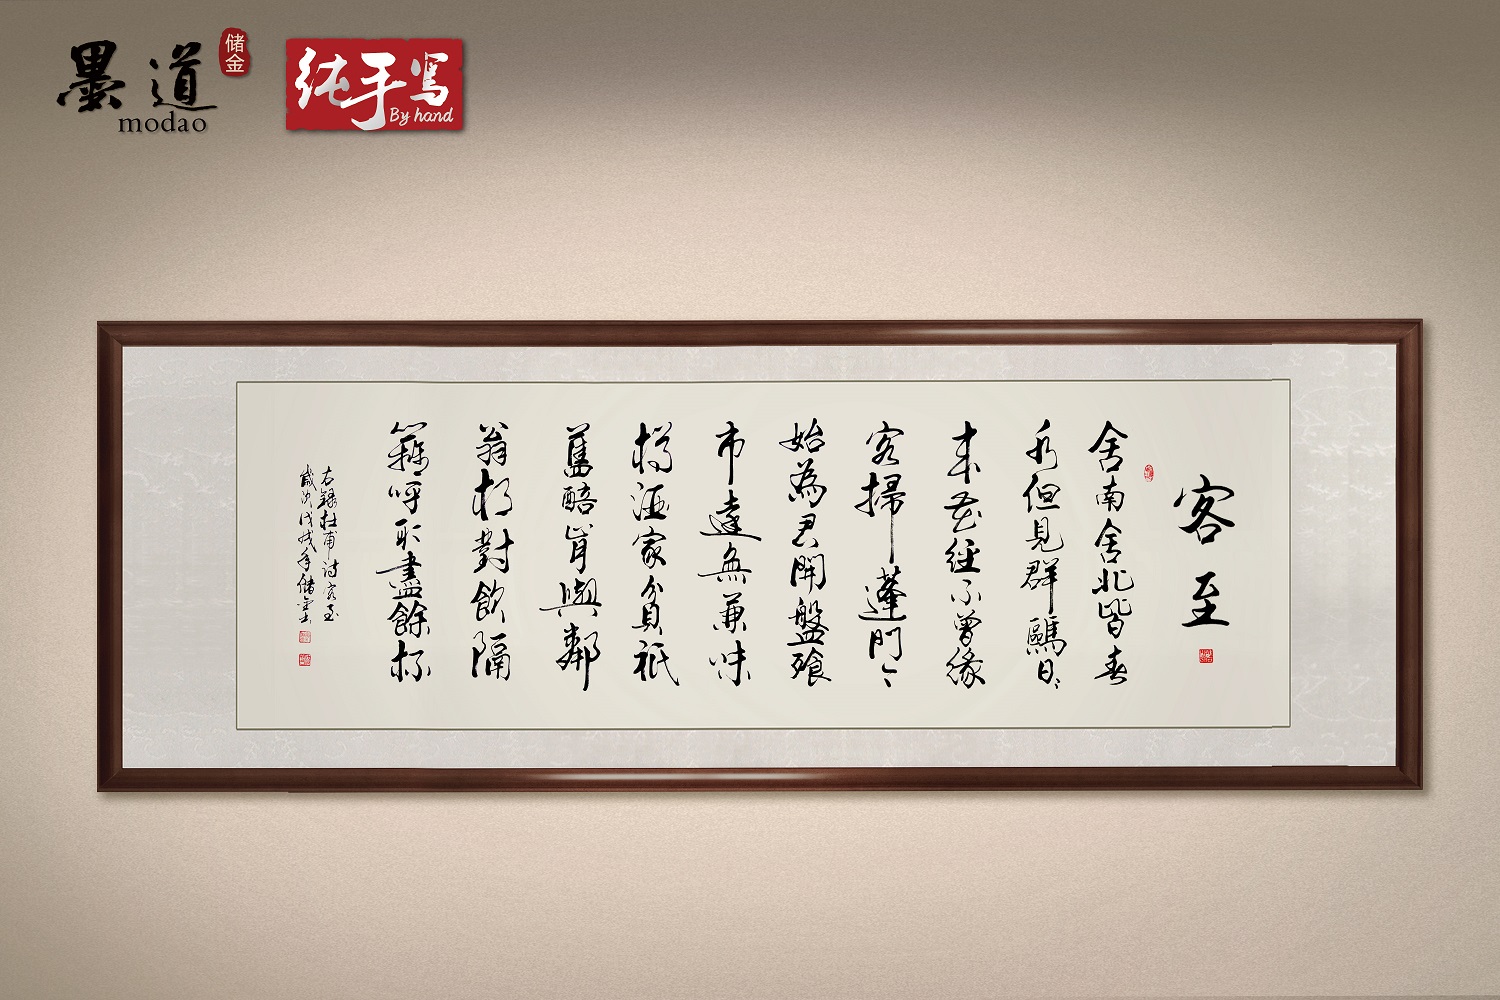 墨道
modao
储金
纯手写
By hand
客至
舍南舍北皆春
水但见群鷗日〻
来花径不曾缘
客掃蓬門今
始為君開盤飱
市遠無兼味
樽酒家貧秖
舊醅肯與鄰
翁相對飲隔
籬呼取盡餘杯
右録杜甫诗客至
歲次戊戌年储金书